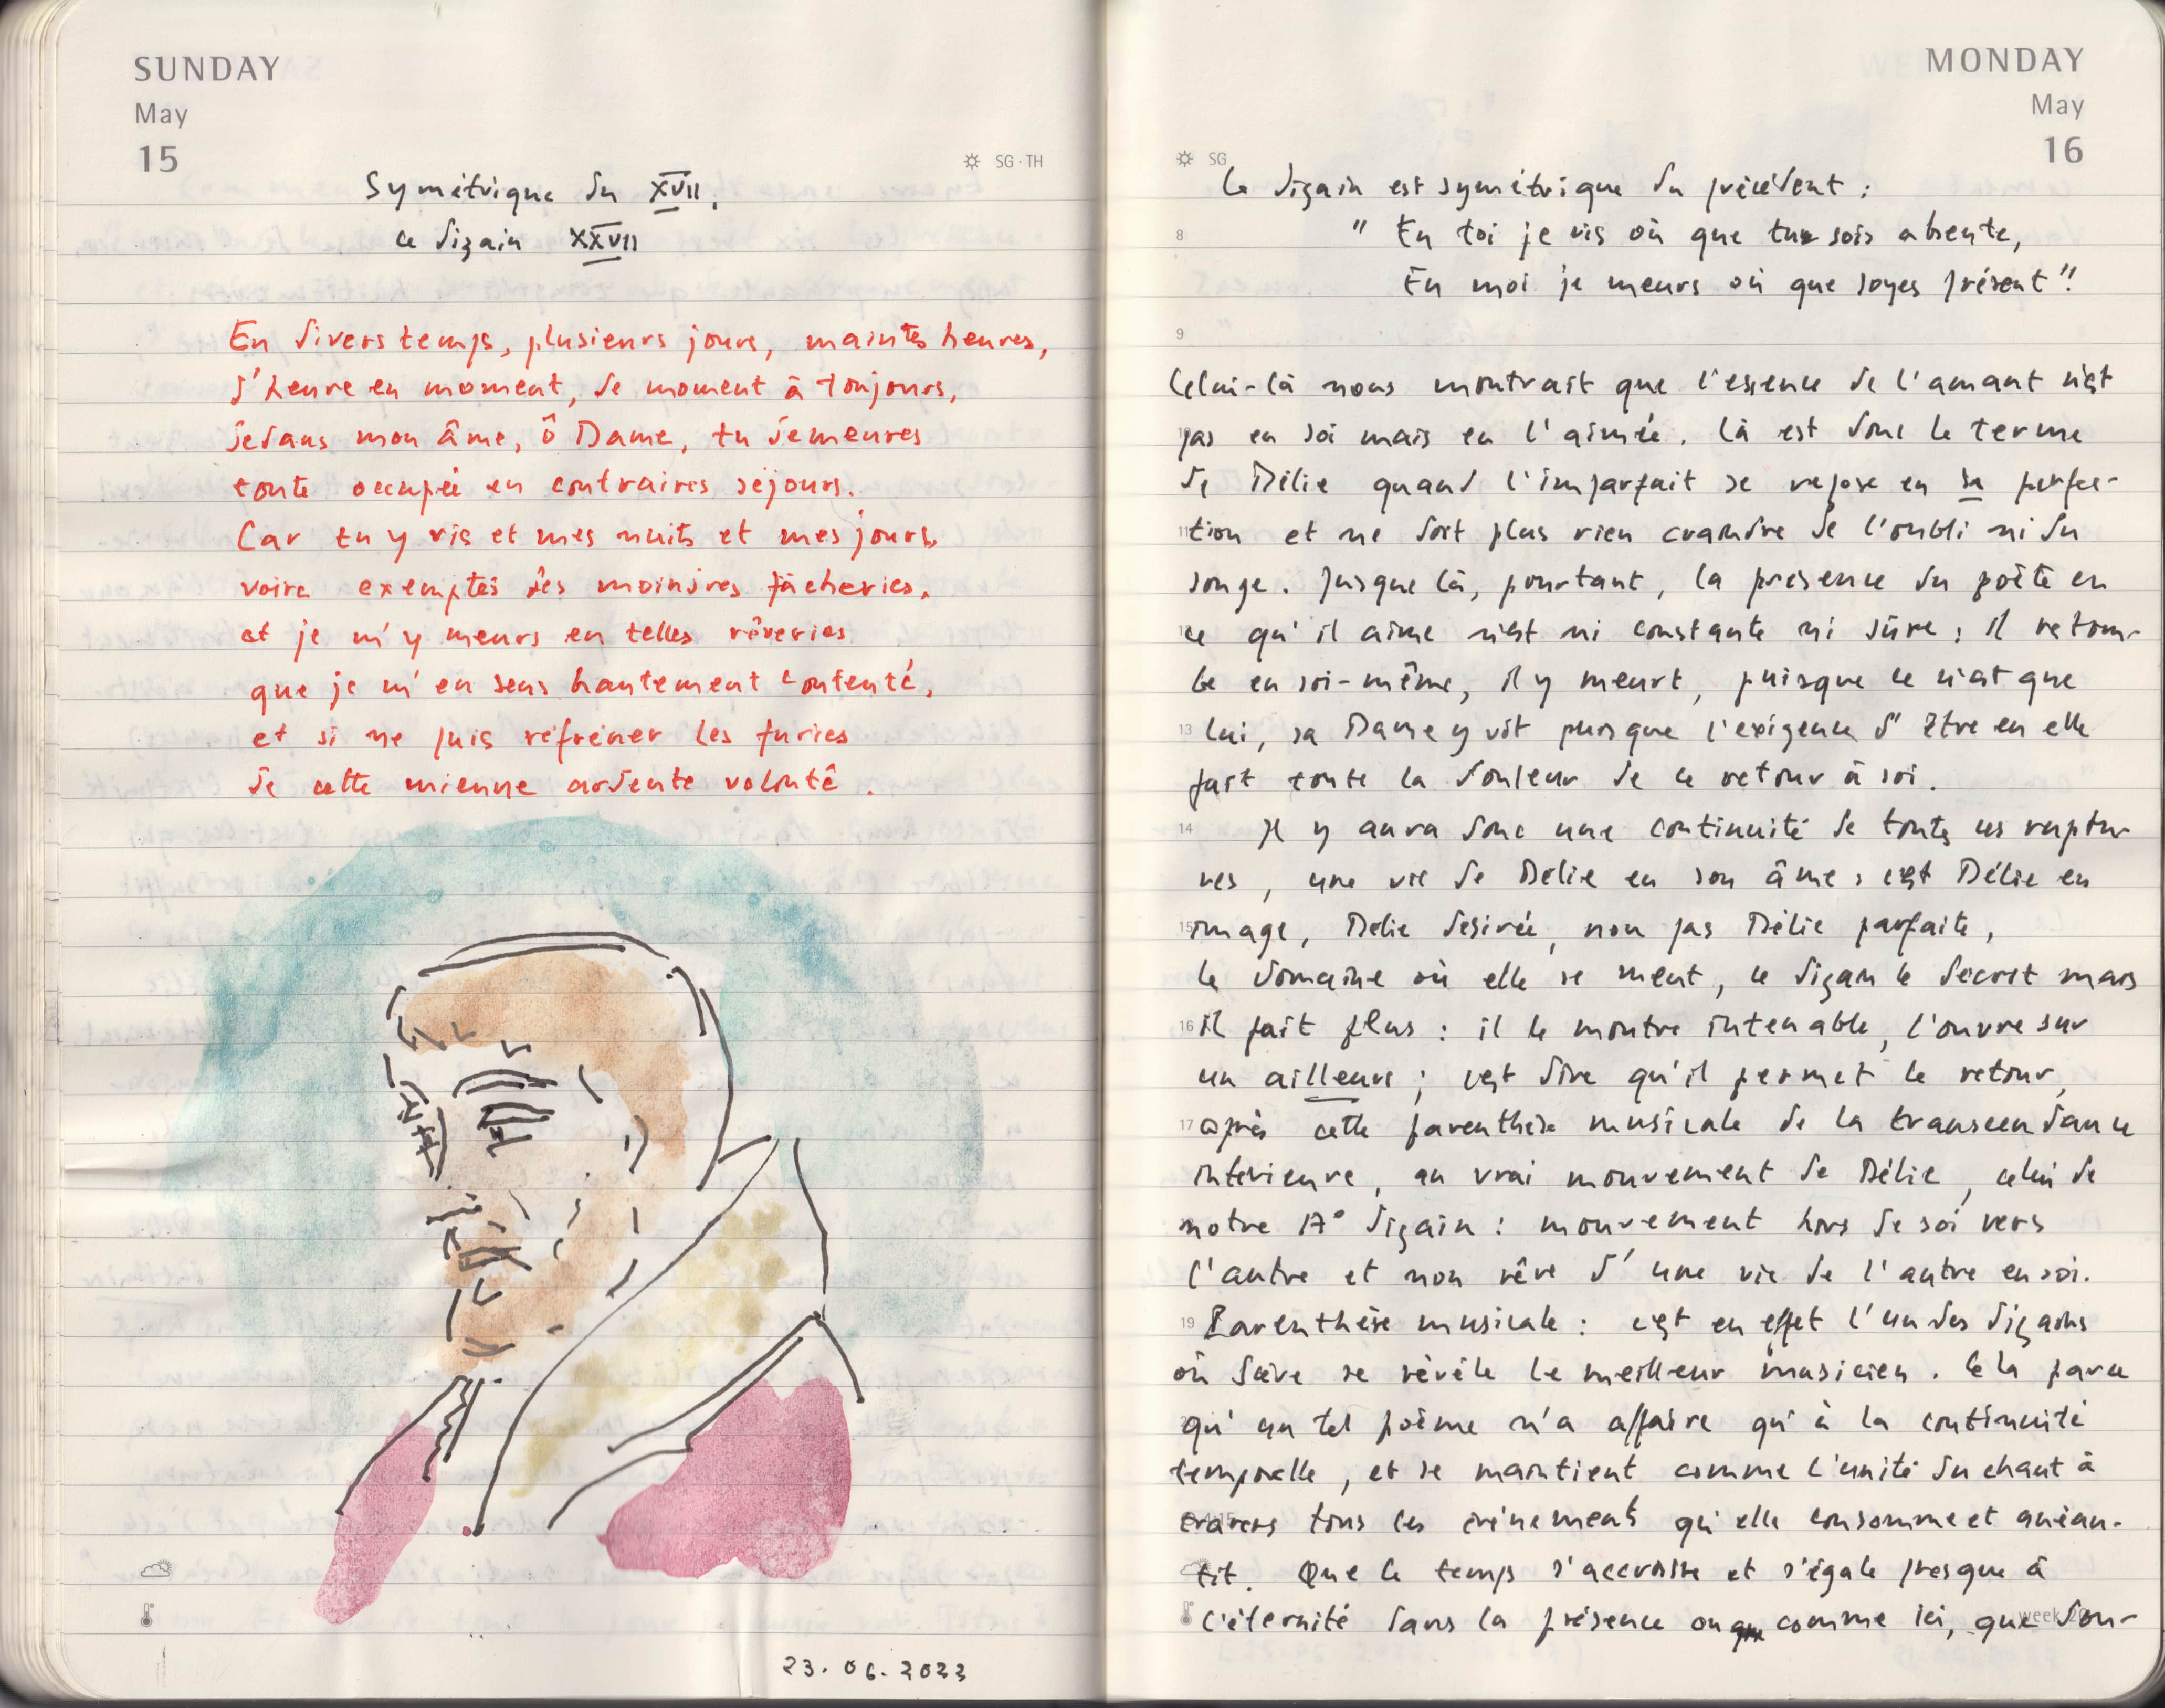 SUNDAY
May
15
SG · TH
Symétrique du XVII,
ce dizain XXVII
En divers temps, plusieurs jours, maintes heures,
d'heure en moment, de moment à toujours,
dedans mon âme, ô Dame, tu demeures
toute occupée en contraires séjours.
Car tu y vis et mes nuits et mes jours,
voire exemptés des moindres fâcheries,
et je m'y meurs en telles rêveries
que je m'en sens hautement contenté,
et si ne puis refréner les furies
de cette mienne ardente volonté.
23.06.2022
MONDAY
May
16
SG
Ce dizain est symétrique du précédent :
8 " En toi je vis où que tu sois absente,
En moi je meurs où que soyes présent"!
9
Celui-là nous montrait que l'essence de l'amant n'est
pas en soi mais en l'aimée. Là est donc le terme
de Délie quand l'imparfait se repose en sa perfec-
11 tion et ne doit plus rien craindre de l'oubli ni du
songe. Jusque là, pourtant, la présence du poète en
12 ce qu'il aime n'est ni constante ni sûre ; il retom-
be en soi-même, il y meurt, puisque ce n'est que
13 lui, sa Dame y vit puisque l'exigence d'être en elle
fait toute la douleur de ce retour à soi.
14 Il y aura donc une continuité de toutes ces ruptu-
res, une vie de Délie en son âme : c'est Délie en
15 image, Délie désirée, non pas Délie parfaite,
le domaine où elle se meut, ce dizain le décrit mais
16 il fait plus : il le montre intenable, l'ouvre sur
un ailleurs ; c'est dire qu'il permet le retour,
17 après cette parenthèse musicale de la transcendance
intérieure, au vrai mouvement de Délie, celui de
notre 17° dizain : mouvement hors de soi vers
l'autre et non rêve d'une vie de l'autre en soi.
19 Parenthèse musicale : c'est en effet l'un des dizains
où Scève se révèle le meilleur musicien. Cela parce
qu'un tel poème n'a affaire qu'à la continuité
temporelle, et se maintient comme l'unité du chant à
travers tous les événements qu'elle consomme et anéan-
tit. Que le temps s'accroisse et s'égale presque à
l'éternité dans la présence ou comme ici, que dou-
week 20